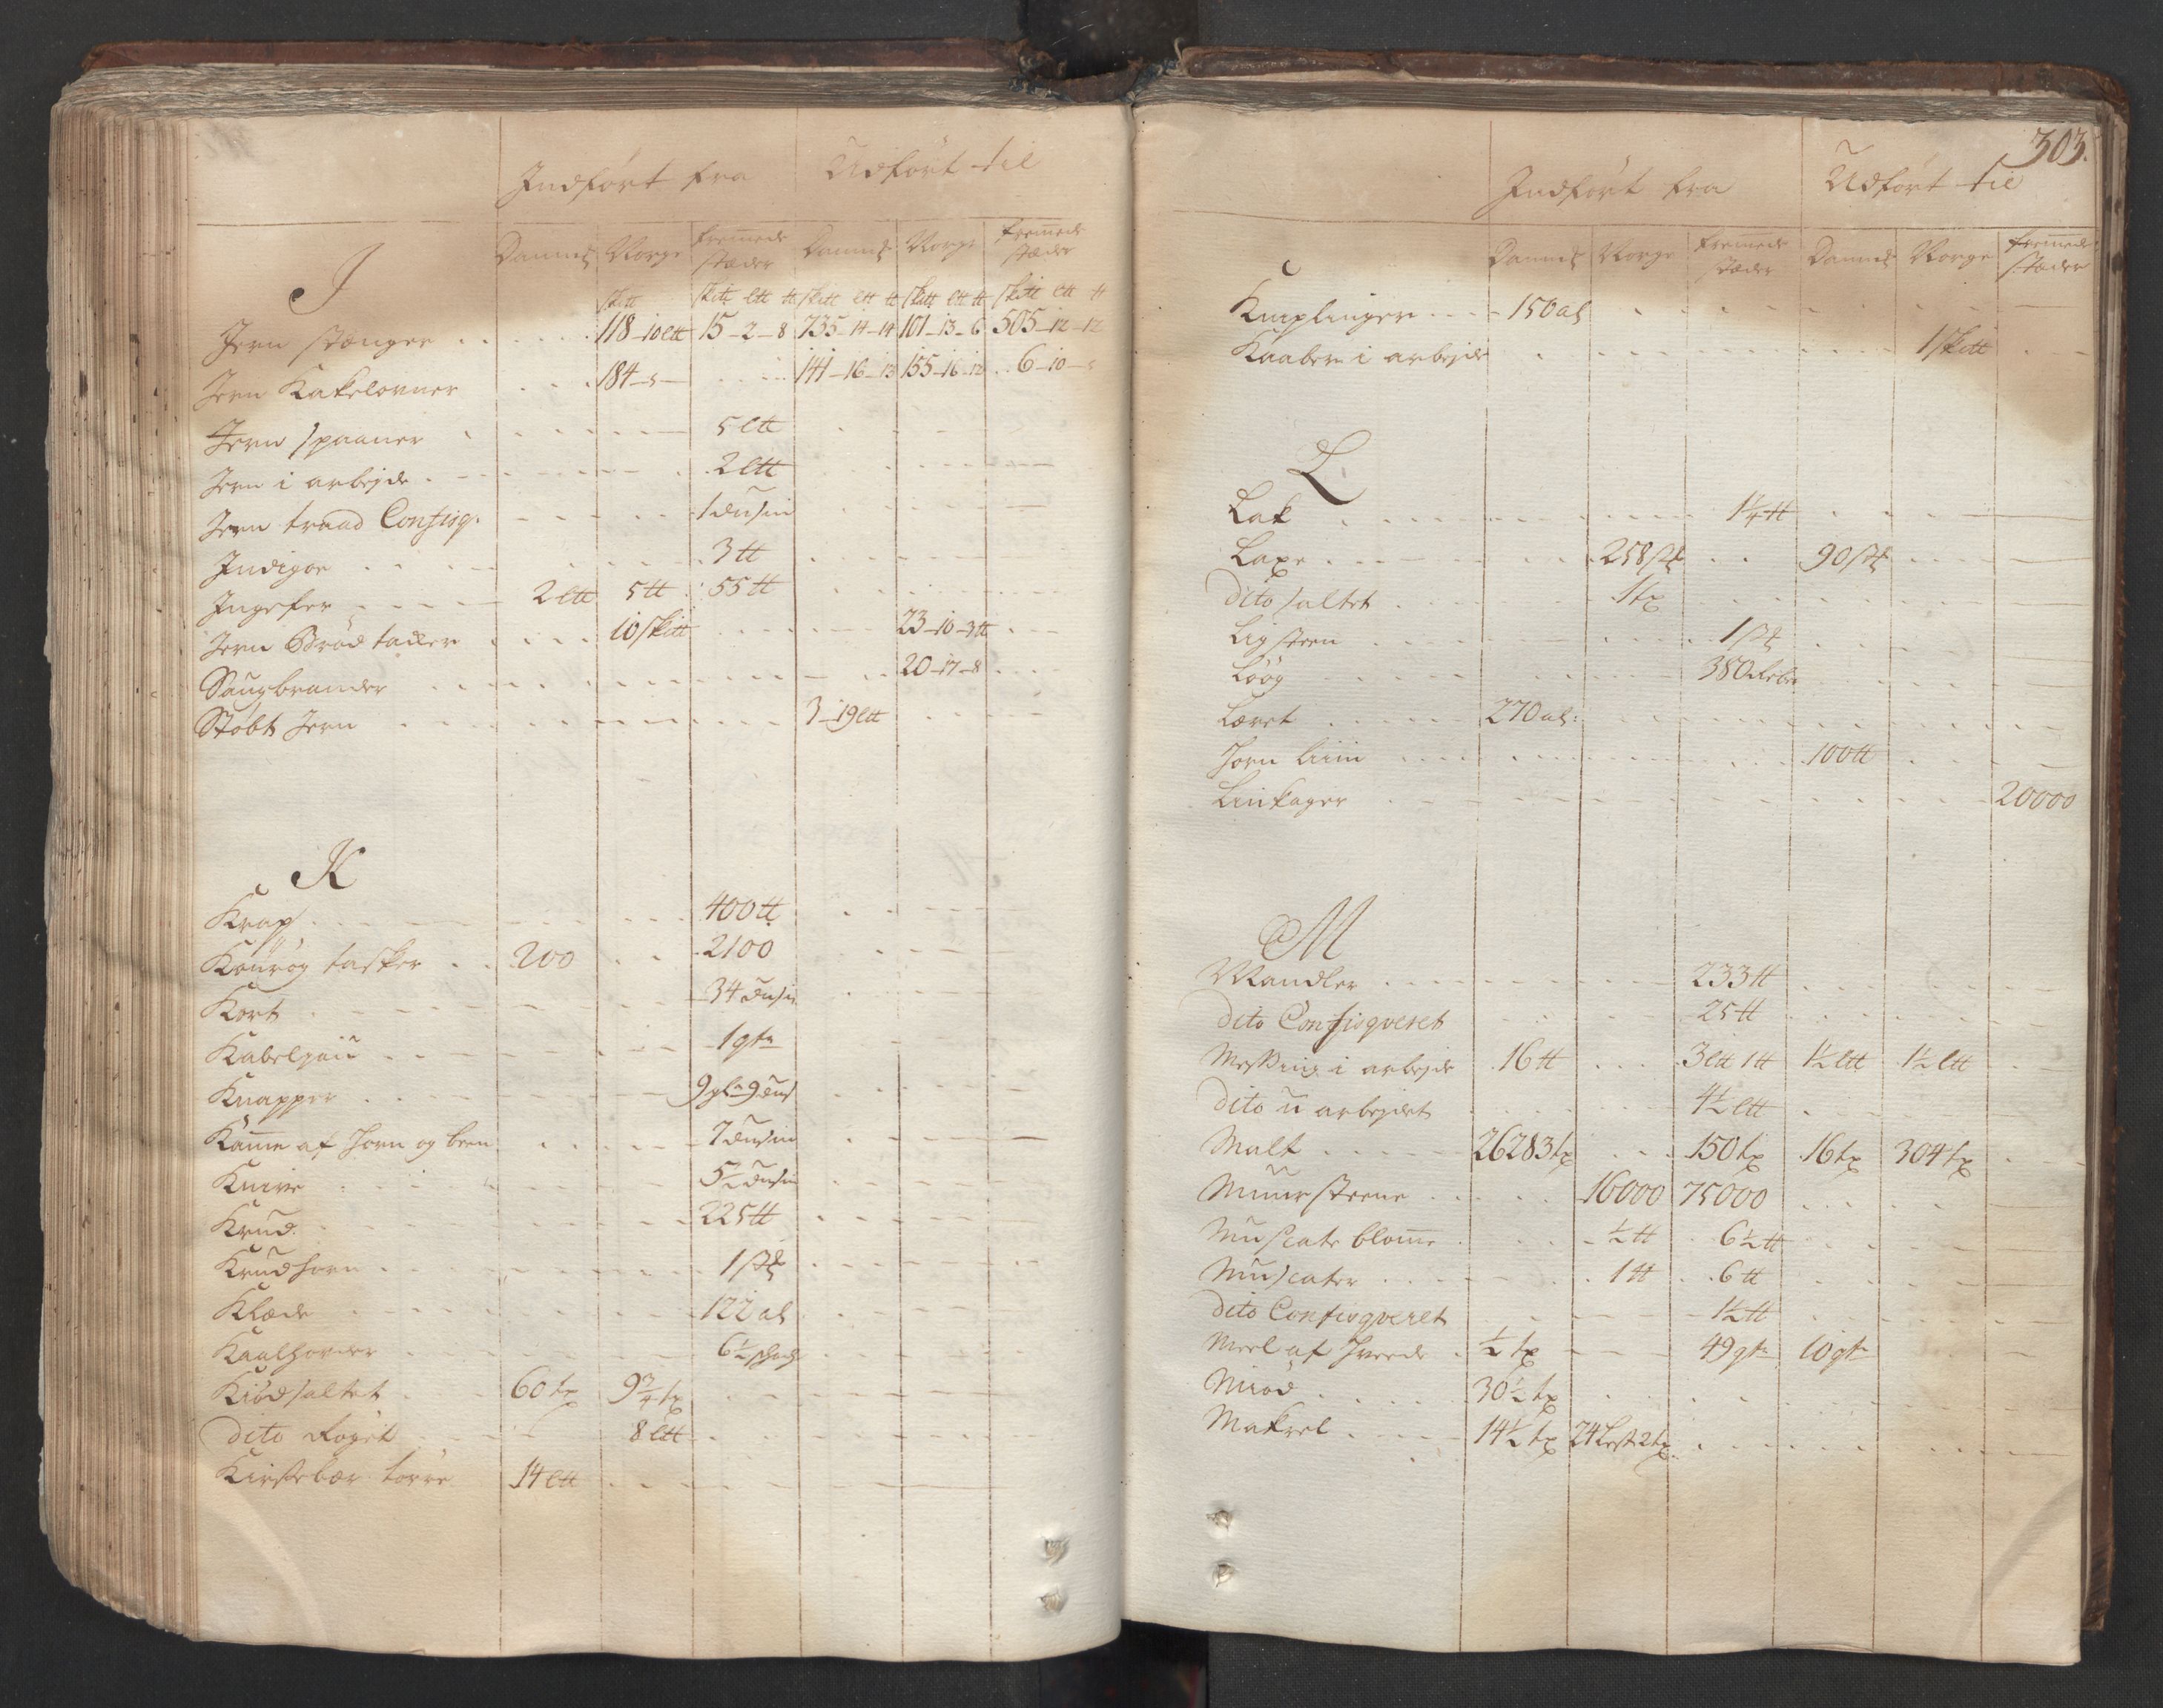 Indført fra Udført til
Danmk Norge fremede stæder Danmk Norge fremede stæder
J
skꝑtt skꝑtt ltt tt skꝑtt ltt tt skꝑtt ltt tt skꝑtt ltt tt
Jern stænger 118-10 ltt 15-2-8 735-14-14 101-13-6 505-12-12
Jern Kakelovner 184-5- 141-16-13 155-16-12 6-10-
Jern spaaner 5 ltt
Jern i arbejde 2 ltt
Jern traad Confisq. 1 dusin
Indigoe 3 tt
Ingefer 2 ltt 5 tt 55 tt
Jern Brød takker 10 skꝑtt 23-10-3 tt
Saugbrander 20-17-8
Støbt Jern 3-19 ltt
K
Krap 400 tt
Kønrøg tasker 200 2100
Kort 34 dusin
Kabelgarn 1 gtr
Knapper 9 gl. 9 dus
Kamme af Horn og been 7 dusin
Knive 5½ dusin
Krud 225 tt
Krudhorn 1 stk
Klæde 122 al
Kaalhoveder 6½ schok
Kiød saltet 60 tr 9¾ tr
dito Røget 8 ltt
Kirsebær tørre 14 ltt
303.
Indført fra Udført til
Danmk Norge fremede stæder Danmk Norge fremede stæder
Kniplinger 150 al
Kaaber i arbejde 1 skꝑtt
L
Lak 1¼ tt
Laxe 258 stk 90 stk
dito saltet 1 tr
Ligsteen 1 stk
Løøg 380 Reber
Lærret 270 al:
Horn Liim 100 tt
Linkager 20000
M
Mandler 233 tt
dito Confisqveret 25 tt
Messing i arbejde 16 tt 3 ltt 1 tt 1½ ltt 1½ ltt
dito u arbejdet 4½ ltt
Malt 26283 tr 150 tr 16 tr 304 tr
Muursteene 16000 75000
Muscate blomme ½ tt 6½ tt
Muscater 1 tt 6 tt
dito Confisqveret 1½ tt
Meel af Hveede ½ tr 49 gtr 10 gtr
Miød 30½ tr
Makrel 14½ tr 24 Lest 2 tr